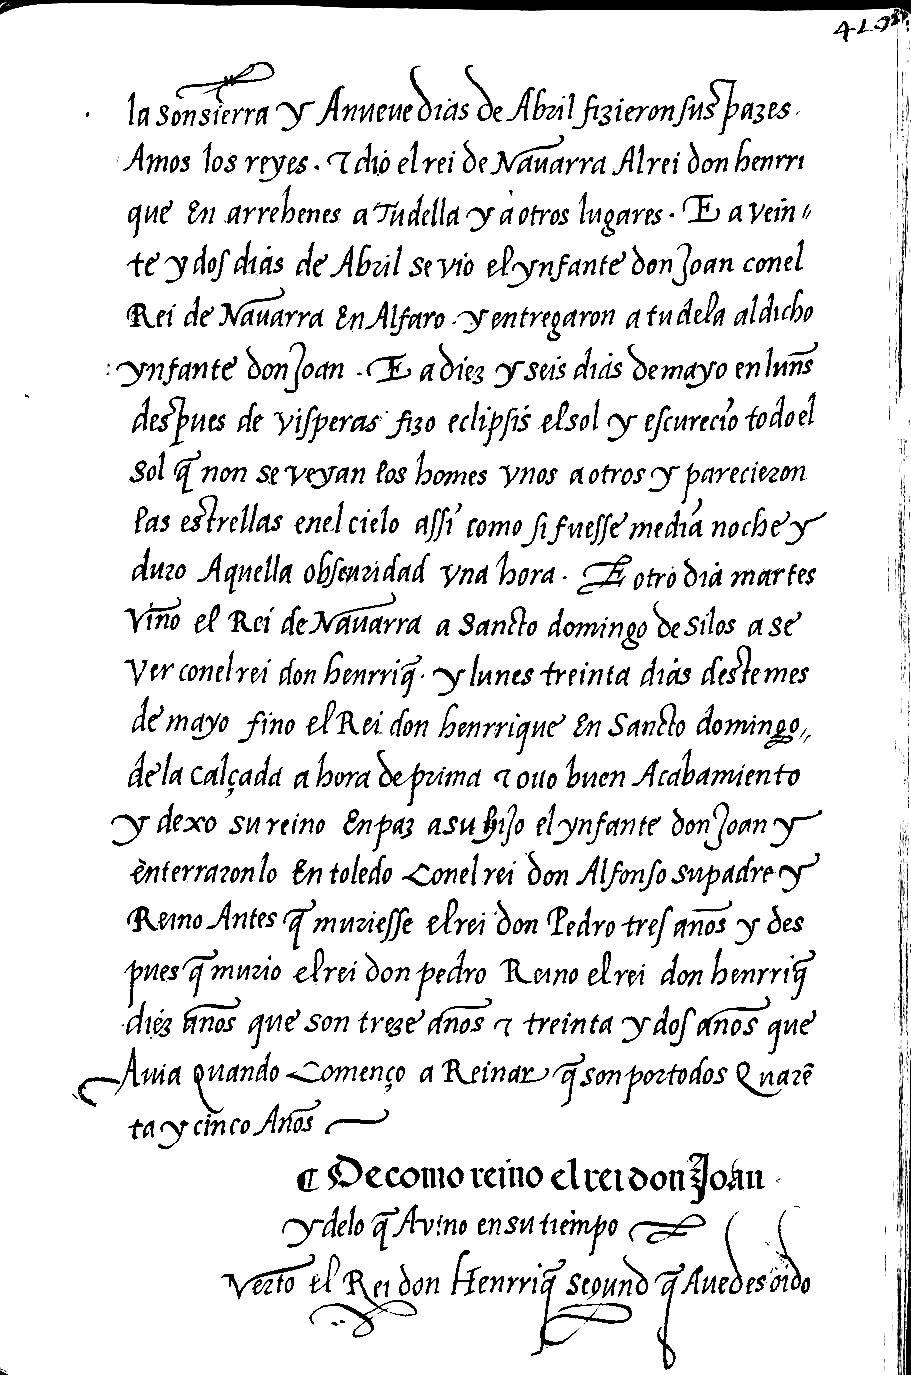 la sonsierra y Anueue dias de Abril fizieron sus pazes.
Amos los reyes. ⁊ dio el rei de Nauarra Al rei don henrri
que En arrehenes a Tudella y a otros lugares. E a vein〃
te y dos dias de Abril se vio el ynfante don Joan conel
Rei de Nauarra En Alfaro. y entregaron a tudela al dicho
ynfante don Joan. E a diez y seis dias de mayo en luñs
despues de visperas fizo eclipsis el sol y escurecio todo el
sol q̃ non se veyan los homes vnos a otros y parecieron
las estrellas enel cielo assi como si fuesse media noche y
duro Aquella obscuridad vna hora. E otro dia martes
Vino el Rei de Nauarra a Sancto domingo de Silos a se
Ver conel rei don henrriq̃. y lunes treinta dias deste mes
de mayo fino el Rei don henrrique En Sancto domingo〃
de la calçada a hora de prima ⁊ ouo buen Acabamiento
y dexo su reino En paz a su hijo el ynfante don Joan y
enterraronlo En toledo Conel rei don Alfonso su padre y
Reino Antes q̃ muriesse el rei don Pedro tres años y des
pues q̃ murio el rei don pedro Reino el rei don henrriq̃
diez años que son treze años ⁊ treinta y dos años que
Auia quando Començo a Reinar q̃ son por todos Quarẽ
ta y cinco Años
¶ De como reino el rei don Joan
y delo q̃ Avino en su tiempo
Verto el Rei don Henrriq̃ segund q̃ Auedes oido